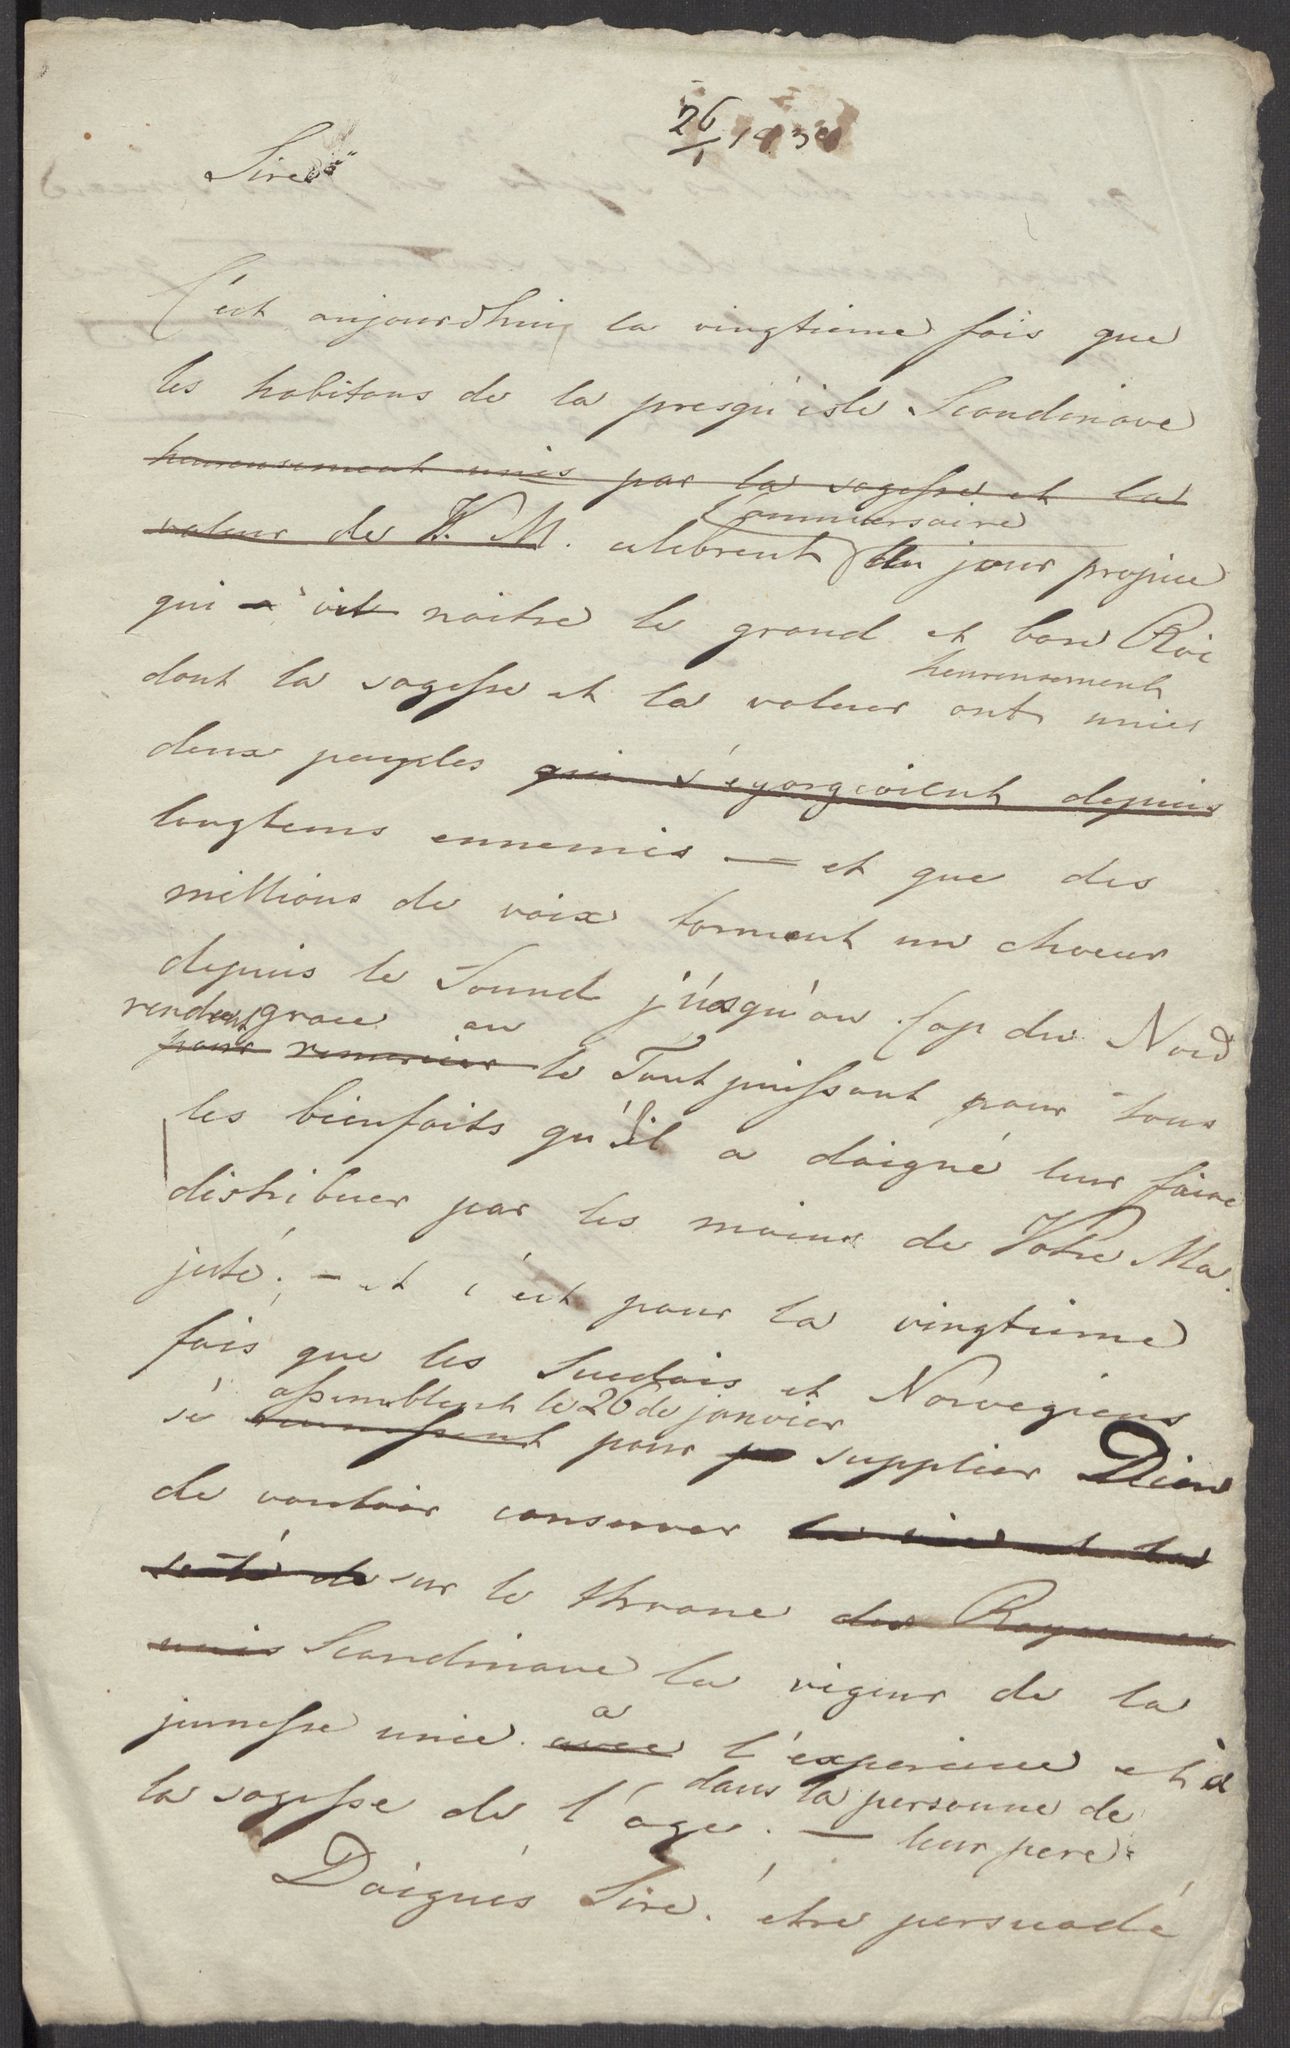 26/1 1838
Sire
C'est aujourdhuy la vingtieme fois que
les habitans de la presqu'isle Scandinave
heureusement unis par la sagesse et la
valeur de V. M. celebrent l'anniversaire du jour propice
qui a vit naitre le grand et bon Roi
dont la sagesse et la valeur ont heureusement unies
deux peuples qui s'égorgeoient depuis
longtems ennemis — et que des
millions de voix forment un choeur
depuis le Sound j'usqu'au Cap du Nord
rendent grace au
pour remercier le Tout puissant pour tous
les bienfaits qu'il a daigné leur faire
distribuer par les mains de Votre Ma
jesté; — et c'est pour la vingtieme
fois que les Suedois et Norvegiens
assemblent le 26 de janvier
se reunissent pour supplier Dieu
de vouloir conserver la vie et la
santé de sur le throne des Royaumes
unis Scandinave la vigeur de la
junesse unie avec a l'experience et à
la sagesse de l'age. — dans la personne de
leur pere.
Daignés Sire, être persuadé